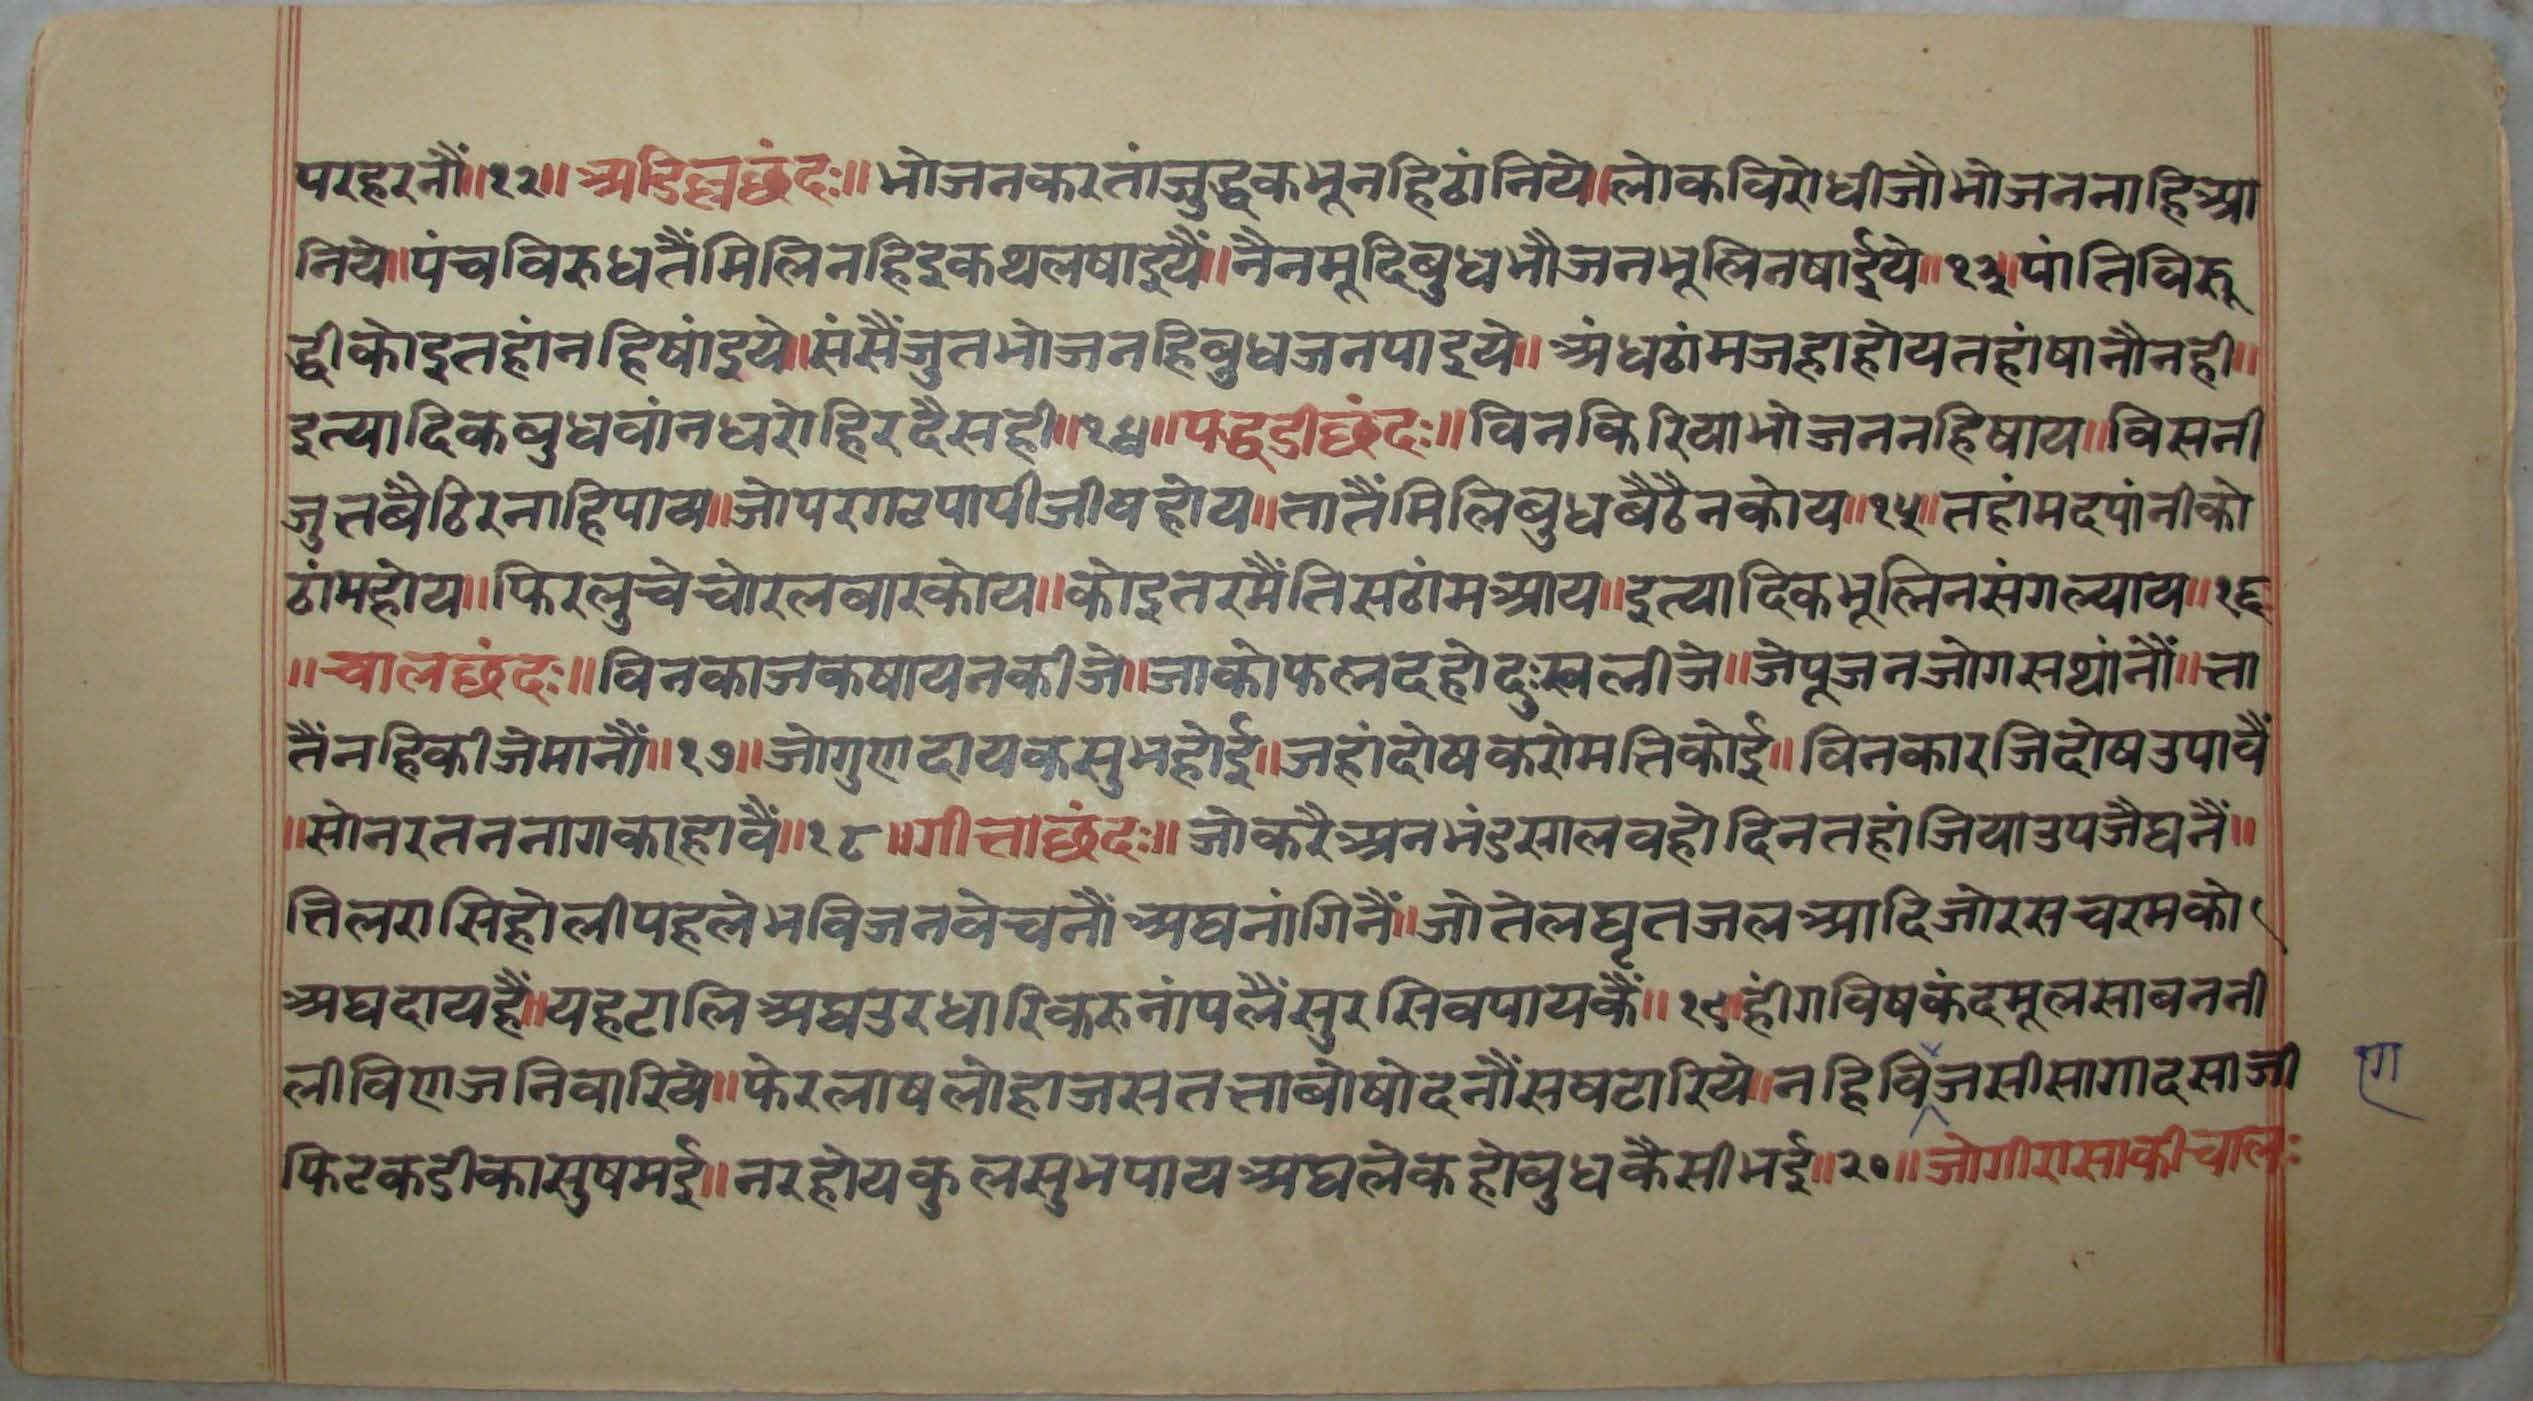 परहरनौं॥१२॥ अडिल्लछंदः॥ भोजनकरतांजुद्धकभूनहिठांनिये॥लोकविरोधीजौभोजननाहिआ
निये॥पंचविरुधतैंमिलिनहिइकथलषाइयैं॥नैनमूदिबुधभौजनभूलिनषाईये॥१३॥पांतिविरू
द्धीकोइतहांनहिषांइये॥संसैंजुतभोजनहिबुधजनपाइये॥ अंधठांमजहाहोयतहांषानौनही॥
इत्यादिकबुधवांनधरोहिरदैसही॥१४॥पद्धडीछंदः॥विनकिरियाभोजननहिषाय॥विसनी
जुतबैठिरनाहिपाय॥जोपरगटपापीजीवहोय॥तातैंमिलिबुधबैठैनकोय॥१५॥तहांमदपांनीको
ठांमहोय॥फिरलुचेचोरलबारकोय॥कोइतरमैंतिसठांमआय॥इत्यादिकभूलिनसंगल्याय॥१६
॥चालछंदः॥विनकाजकषायनकीजे॥जाकोफलदहोदुःखलीजे॥जेपूजनजोगसथांनौं॥ता
तैंनहिकीजेमानौं॥१७॥जोगुणदायकसुभहोई॥जहांदोषकरोमतिकोई॥विनकारजिदोषउपावैं
॥सोनरतननागकाहावैं॥१८॥गीताछंदः॥जोकरैअनभंडसालवहोदिनतहांजियाउपजैघनैं॥
तिलरासिहोलीपहलेभविजनवेचनौंअघनांगिनैं॥जोतेलघृतजलआदिजोरसचरमको
अघदायहैं॥यहटालिअघउरधारिकरुनांपलैंसुरसिवपायकैं॥१९॥हींगविषकंदमूलसाबननी
लीविणजनिवारिये॥फेरलाषलोहाजसततांबोषोदनौंसषटारिये॥नहिविंजसीसागादसाजी ण
फिटकडीकासुषमई॥नरहोयकुलसुभपायअघलेकहोबुधकैसीभई॥२०॥जोगीरासाकीचालः